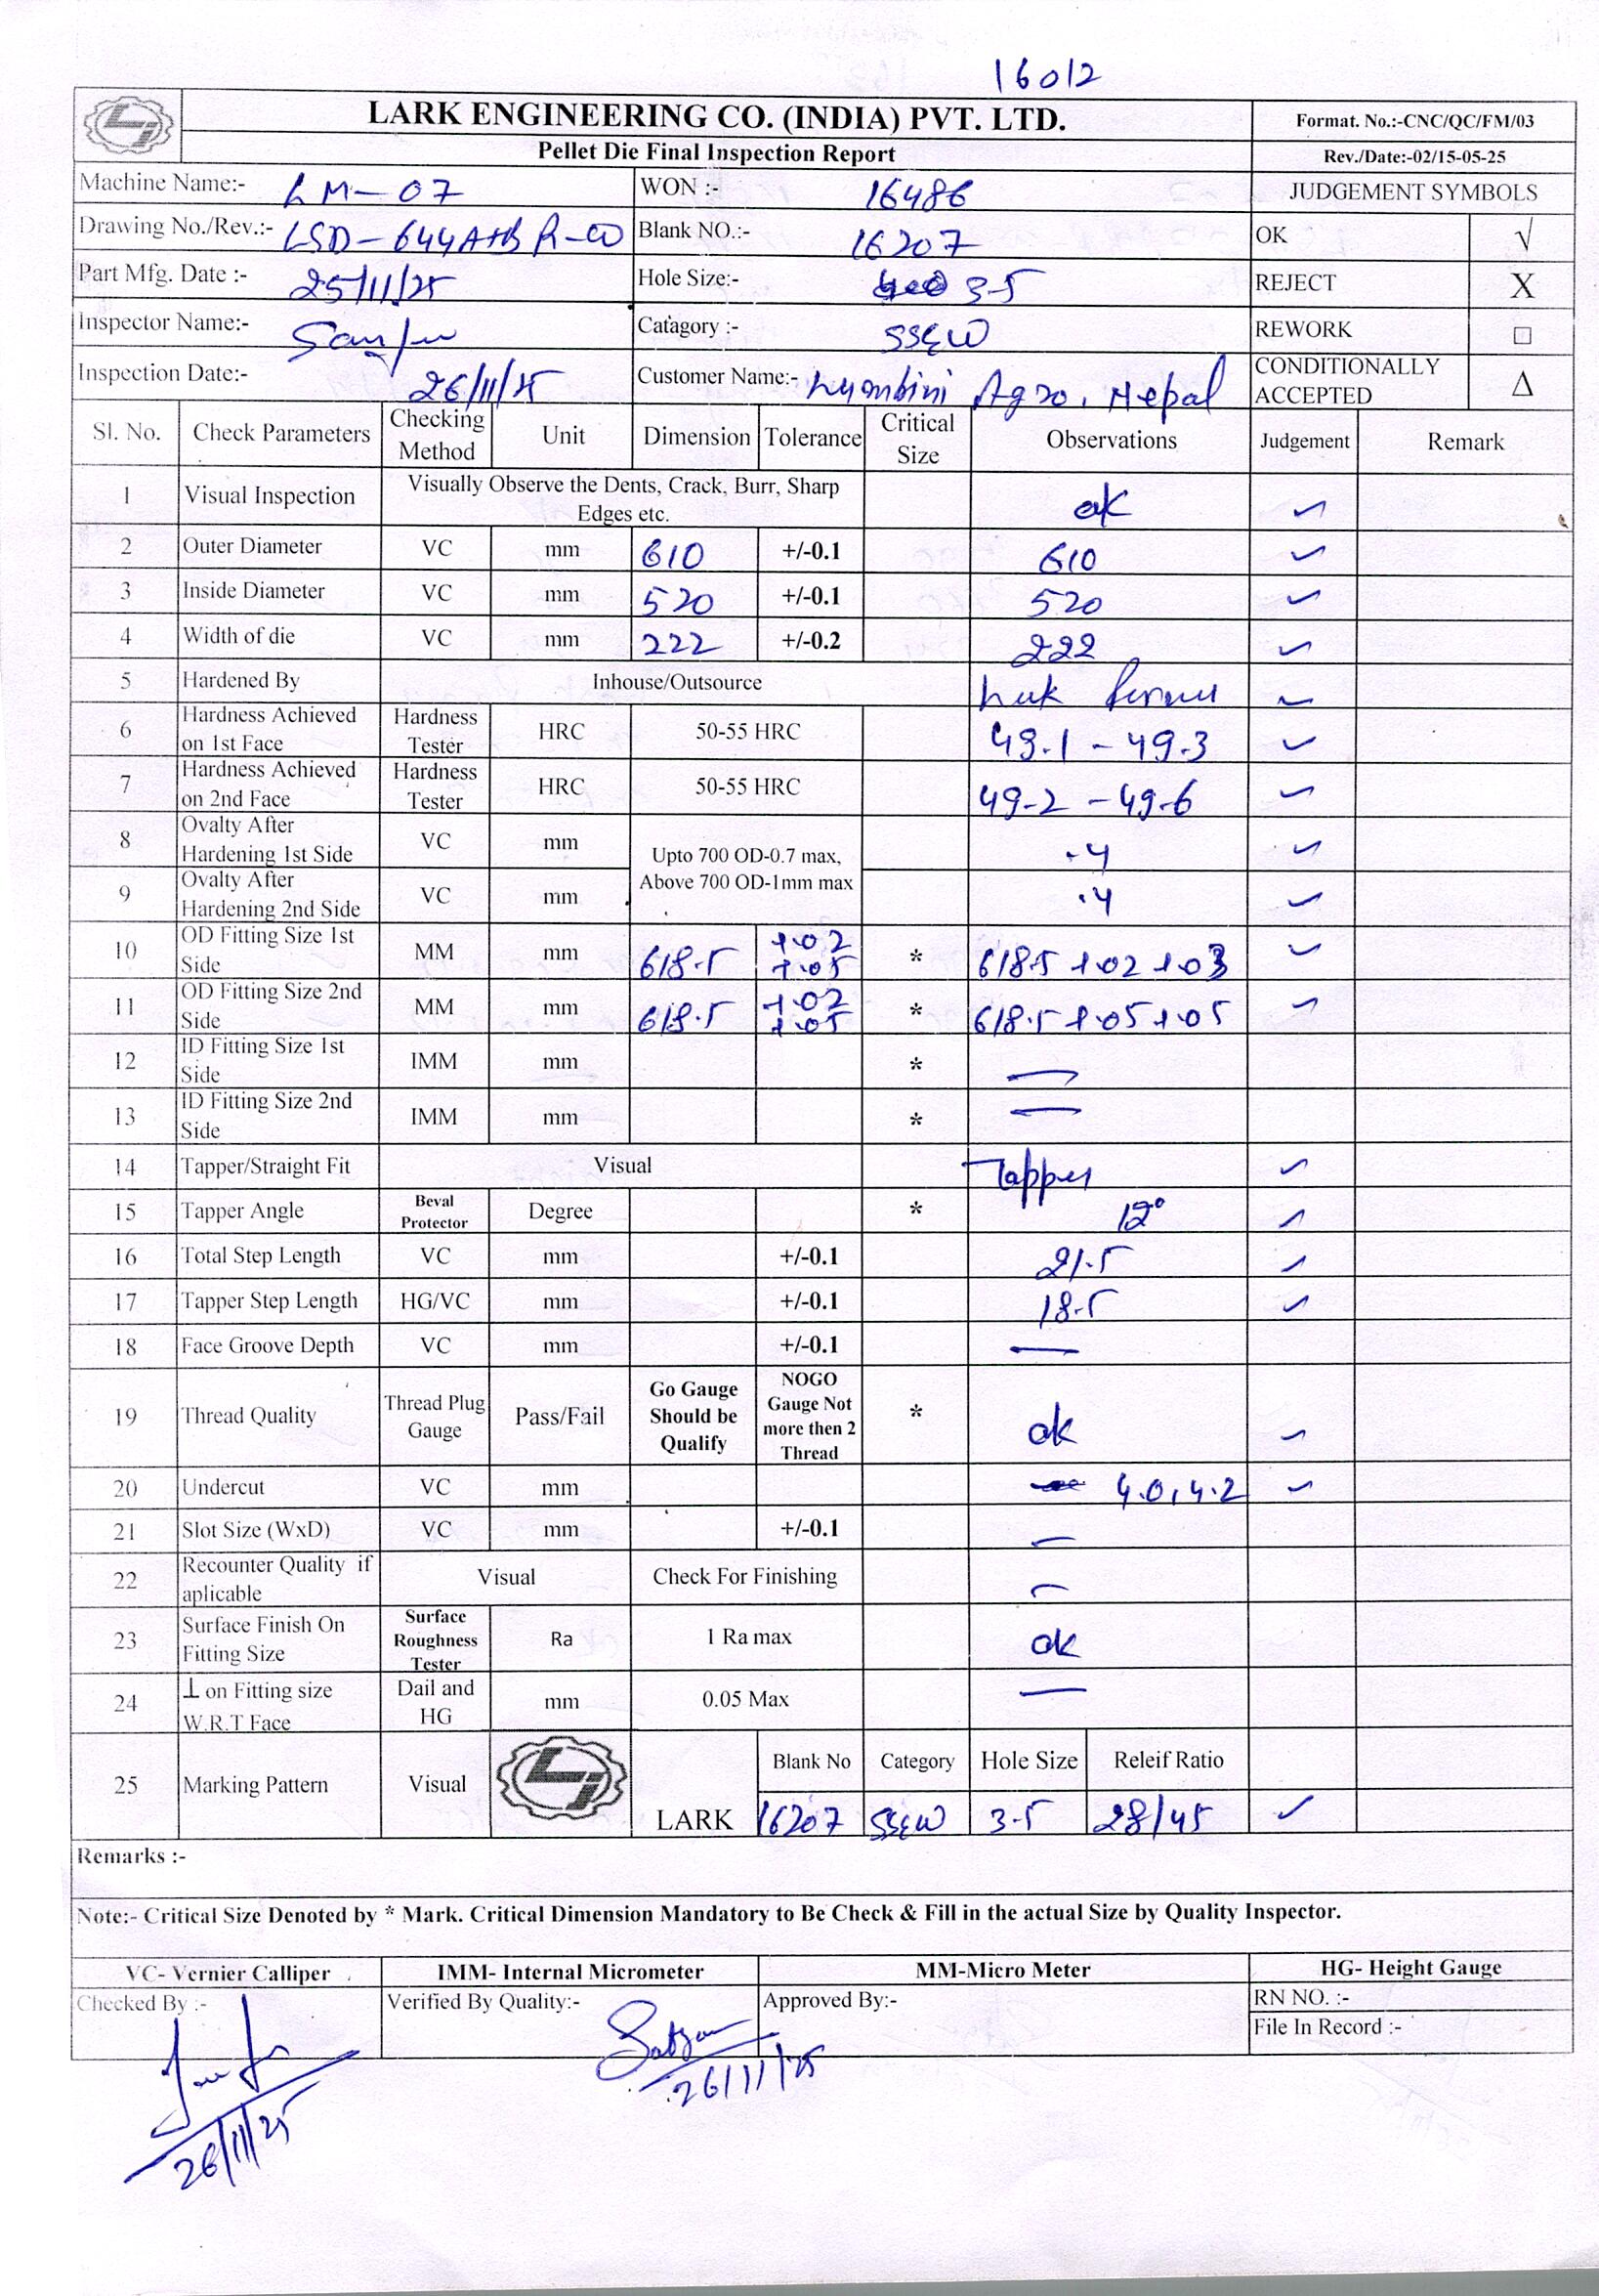 16012
LARK ENGINEERING CO. (INDIA) PVT. LTD.
Format. No.:-CNC/QC/FM/03
Pellet Die Final Inspection Report
Rev./Date:-02/15-05-25
Machine Name:- LM-07 WON :- 16486 JUDGEMENT SYMBOLS
Drawing No./Rev.:- LSD-644A+B R-00 Blank NO.:- 16207 OK √
Part Mfg. Date :- 25/11/25 Hole Size:- 3.5 REJECT X
Inspector Name:- Catagory :- SS&W REWORK □
Inspection Date:- 26/11/25 Customer Name:- Lumbini Agro, Nepal CONDITIONALLY ACCEPTED Δ
Sl. No. Check Parameters Checking Method Unit Dimension Tolerance Critical Size Observations Judgement Remark
1 Visual Inspection Visually Observe the Dents, Crack, Burr, Sharp Edges etc. ok ✓
2 Outer Diameter VC mm 610 +/-0.1 610 ✓
3 Inside Diameter VC mm 520 +/-0.1 520 ✓
4 Width of die VC mm 222 +/-0.2 222 ✓
5 Hardened By Inhouse/Outsource ✓
6 Hardness Achieved on 1st Face Hardness Tester HRC 50-55 HRC 49.1 - 49.3 ✓
7 Hardness Achieved on 2nd Face Hardness Tester HRC 50-55 HRC 49.2 - 49.6 ✓
8 Ovalty After Hardening 1st Side VC mm Upto 700 OD-0.7 max, Above 700 OD-1mm max .4 ✓
9 Ovalty After Hardening 2nd Side VC mm .4 ✓
10 OD Fitting Size 1st Side MM mm 618.5 +.02 +.05 * 618.5 +.02 +.03 ✓
11 OD Fitting Size 2nd Side MM mm 618.5 +.02 +.05 * 618.5 +.05 +.05 ✓
12 ID Fitting Size 1st Side IMM mm * —
13 ID Fitting Size 2nd Side IMM mm * —
14 Tapper/Straight Fit Visual Tapper ✓
15 Tapper Angle Beval Protector Degree * 12° ✓
16 Total Step Length VC mm +/-0.1 21.5 ✓
17 Tapper Step Length HG/VC mm +/-0.1 18.5 ✓
18 Face Groove Depth VC mm +/-0.1 —
19 Thread Quality Thread Plug Gauge Pass/Fail Go Gauge Should be Qualify NOGO Gauge Not more then 2 Thread * ok ✓
20 Undercut VC mm 4.0, 4.2 ✓
21 Slot Size (WxD) VC mm +/-0.1 —
22 Recounter Quality if aplicable Visual Check For Finishing —
23 Surface Finish On Fitting Size Surface Roughness Tester Ra 1 Ra max ok
24 ⊥ on Fitting size W.R.T Face Dail and HG mm 0.05 Max —
25 Marking Pattern Visual LARK Blank No Category Hole Size Releif Ratio
16207 SS&W 3.5 28/45 ✓
Remarks :-
Note:- Critical Size Denoted by * Mark. Critical Dimension Mandatory to Be Check & Fill in the actual Size by Quality Inspector.
VC- Vernier Calliper IMM- Internal Micrometer MM-Micro Meter HG- Height Gauge
Checked By :- Verified By Quality:- Approved By:- RN NO. :-
File In Record :-
26/11/25
26/11/25